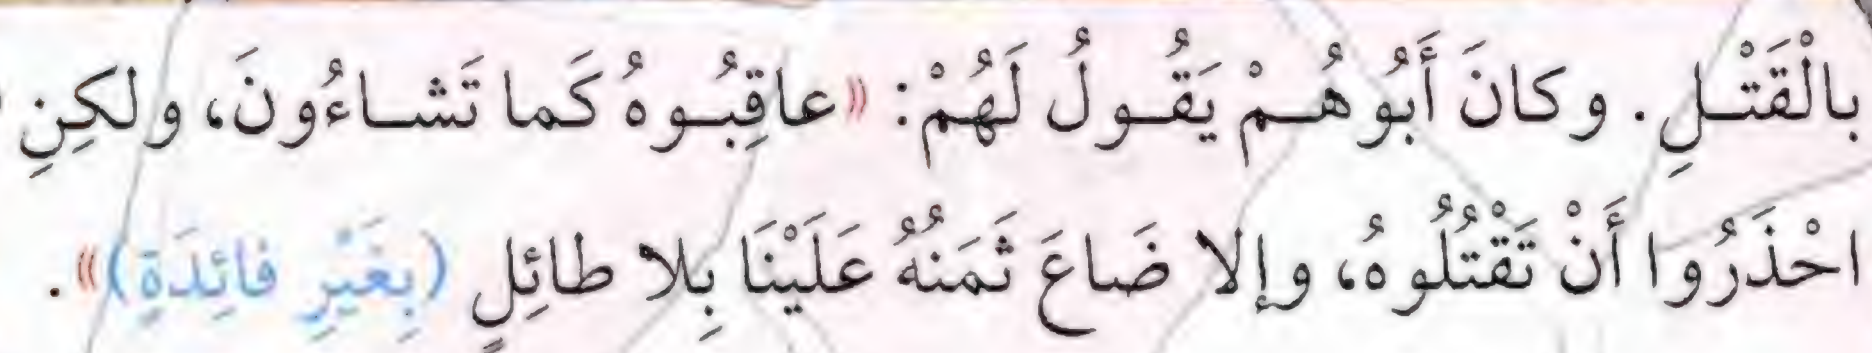 بالْقَتْلِ. وكانَ أَبُوهُمْ يَقُولُ لَهُمْ: «عاقِبُوهُ كَما تَشاءُونَ، ولكِنِ
احْذَرُوا أَنْ تَقْتُلُوهُ، وإلا ضَاعَ ثَمَنُهُ عَلَيْنَا بِلا طائِلٍ (بِغَيْرِ فائِدَةٍ)».